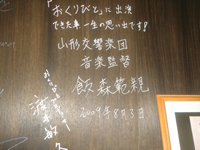 「おくりびと」に出演
できた事 一生の思い出です!
山形交響楽団
音楽監督
飯森範親
2009年8月3日